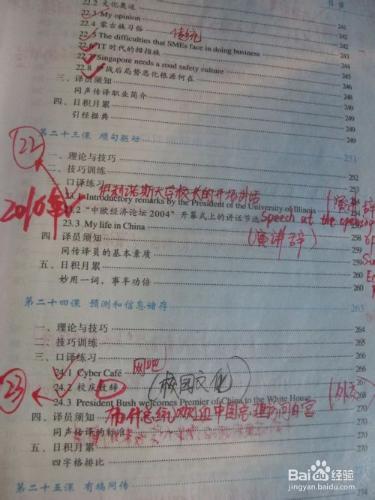 22.2 文化奥运 241
22.3 My opinion 241
22.4 蒙古族习俗 242
传统
22.5 The difficulties that SMEs face in doing business
22.6 IT 时代的拇指族
22.7 Singapore needs a road safety culture
三、译员须知
同声传译职业简介
四、日积月累
引经据典
第二十三课 顺句驱动 251
22
一、理论与技巧
二、技巧训练
三、口译练习
伊利诺斯大学校长的开场讲话
23.1 Introductory remarks by the President of the University of Illinois
2010年
23.2 “中欧经济论坛 2004”开幕式上的讲话节选
Speech at the opening
23.3 My life in China
(演讲辞)
四、译员须知
同传译员的基本素质
五、日积月累
妙用一词，事半功倍
第二十四课 预测和信息储存 265
一、理论与技巧
二、技巧训练
三、口译练习
网吧
24.1 Cyber Café
24.2 校庆致辞
(校园文化)
23
24.3 President Bush welcomes Premier of China to the White House 270
四、译员须知 270
布什总统欢迎中国总理访问白宫
同声传译的标准 270
五、日积月累
四字格排比
第二十五课 有稿同传
Baidu 经验
jingyan.baidu.com